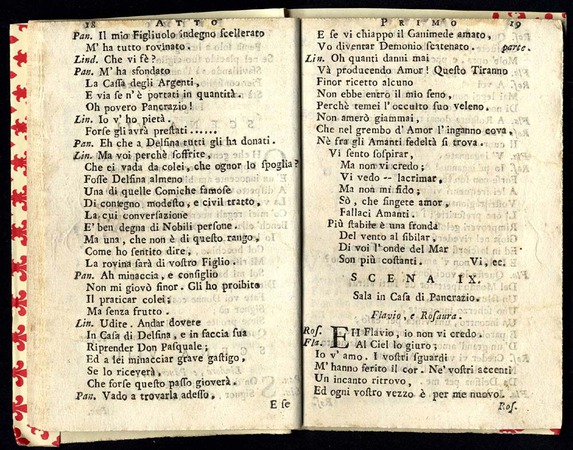 18 ATTO
Pan. Il mio Figliuolo indegno scellerato
M' ha tutto rovinato.
Lind. Che vi fè?
Pan. M' ha sfondato
La Cassa degli Argenti,
E via se n'è portati in quantità.
Oh povero Pancrazio!
Lin. Io v' hò pietà.
Forse gli avrà prestati ......
Pan. Eh che a Delfina tutti gli ha donati.
Lin. Ma voi perchè soffrite,
Che ei vada da colei, che ognor lo spoglia?
Fosse Delfina almeno
Una di quelle Comiche famose
Di contegno modesto, e civil tratto,
La cui conversazione
E' ben degna di Nobili persone.
Ma una, che non è di questo rango,
Come ho sentito dire,
La rovina sarà di vostro Figlio.
Pan. Ah minaccia, e consiglio
Non mi giovò finor. Gli ho proibito
Il praticar colei;
Ma senza frutto.
Lin. Udite. Andar dovete
In Casa di Delfina, e in faccia sua
Riprender Don Pasquale;
Ed a lei minacciar grave gastigo,
Se lo riceverà,
Che forse questo passo gioverà.
Pan. Vado a trovarla adesso,
E se
PRIMO 19
E se vi chiappo il Ganimede amato,
Vo diventar Demonio scatenato. parte.
Lin. Oh quanti danni mai
Và producendo Amor! Questo Tiranno
Finor ricetto alcuno
Non ebbe entro il mio seno,
Perchè temei l'occulto suo veleno.
Non amerò giammai,
Che nel grembo d' Amor l'inganno cova,
Nè fra gli Amanti fedeltà si trova.
Vi sento sospirar,
Ma non vi credo;
Vi vedo -- lacrimar,
Ma non mi fido;
Sò, che finger amor,
Fallaci Amanti.
Più stabile è una fronda
Del vento al sibilar,
Di voi l'onde del Mar
Son più costanti. Vi, ec.
SCENA IX.
Sala in Casa di Pancrazio.
Flavio, e Rosaura.
Ros. EH Flavio, io non vi credo.
Fla. Al Ciel lo giuro;
Io v' amo. I vostri sguardi
M' hanno ferito il cor. Ne' vostri accenti
Un incanto ritrovo,
Ed ogni vostro vezzo è per me nuovo.
Ros.